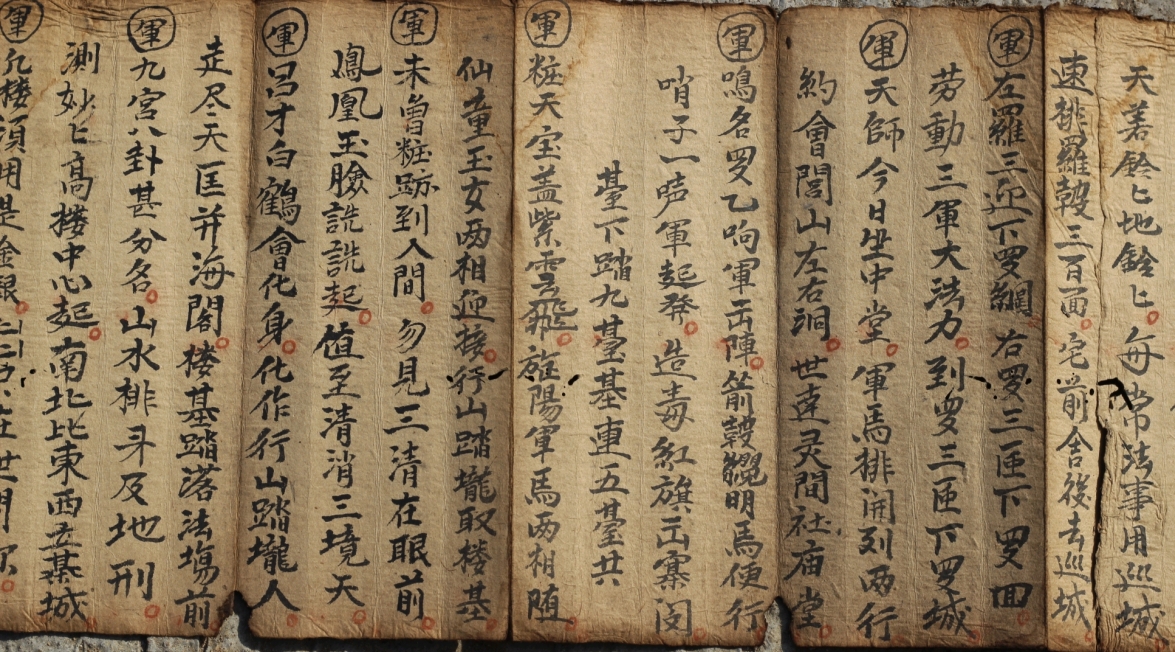 天善鈴匕地鈴匕每常法事用巡城
速排羅鼓三百面宅前舍後去巡城
軍左羅三迎下罗網右罗三匝下罗回
劳動三軍大法力到罗三匝下罗城
軍天師今日坐中堂軍馬排開列两行
約會閭山左右洞世速灵間社庙堂
軍鳴名罗乙响軍出陣箭鼓明馬便行
哨子一声軍起發造毒紅旗出寨
臺下踏九臺基連五臺共
軍粧天宝盖紫雲飛旌陽軍馬两相随
仙童玉女两相迎接行山踏壠取楼基
軍未曾粧跡到人間勿見三清在眼前
鳳凰玉臉詵詵起值至清消三境天
軍吕才白鶴會化身化作行山踏壠人
走尽天匡并海閣楼基踏落法場前
軍九宮八卦甚分名山水排斗及地刑
測妙匕高楼中心起南北比東西立基城
軍楼須用是金銀